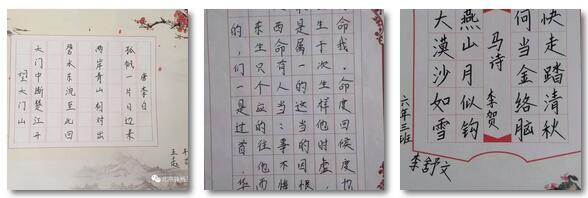 望天门山
天门中断楚江开
碧水东流至此回
两岸青山相对出
孤帆一片日边来
唐李白
的东西是生命
，生命属于我
们只有一次。
一个人的生命
是应当这样度
过的：当他回
首往事的时候
，他不因虚度
华而悔恨，也
大漠沙如雪
燕山月似钩
马诗
李贺
何当金络脑
快走踏清秋
六年三班
李舒文